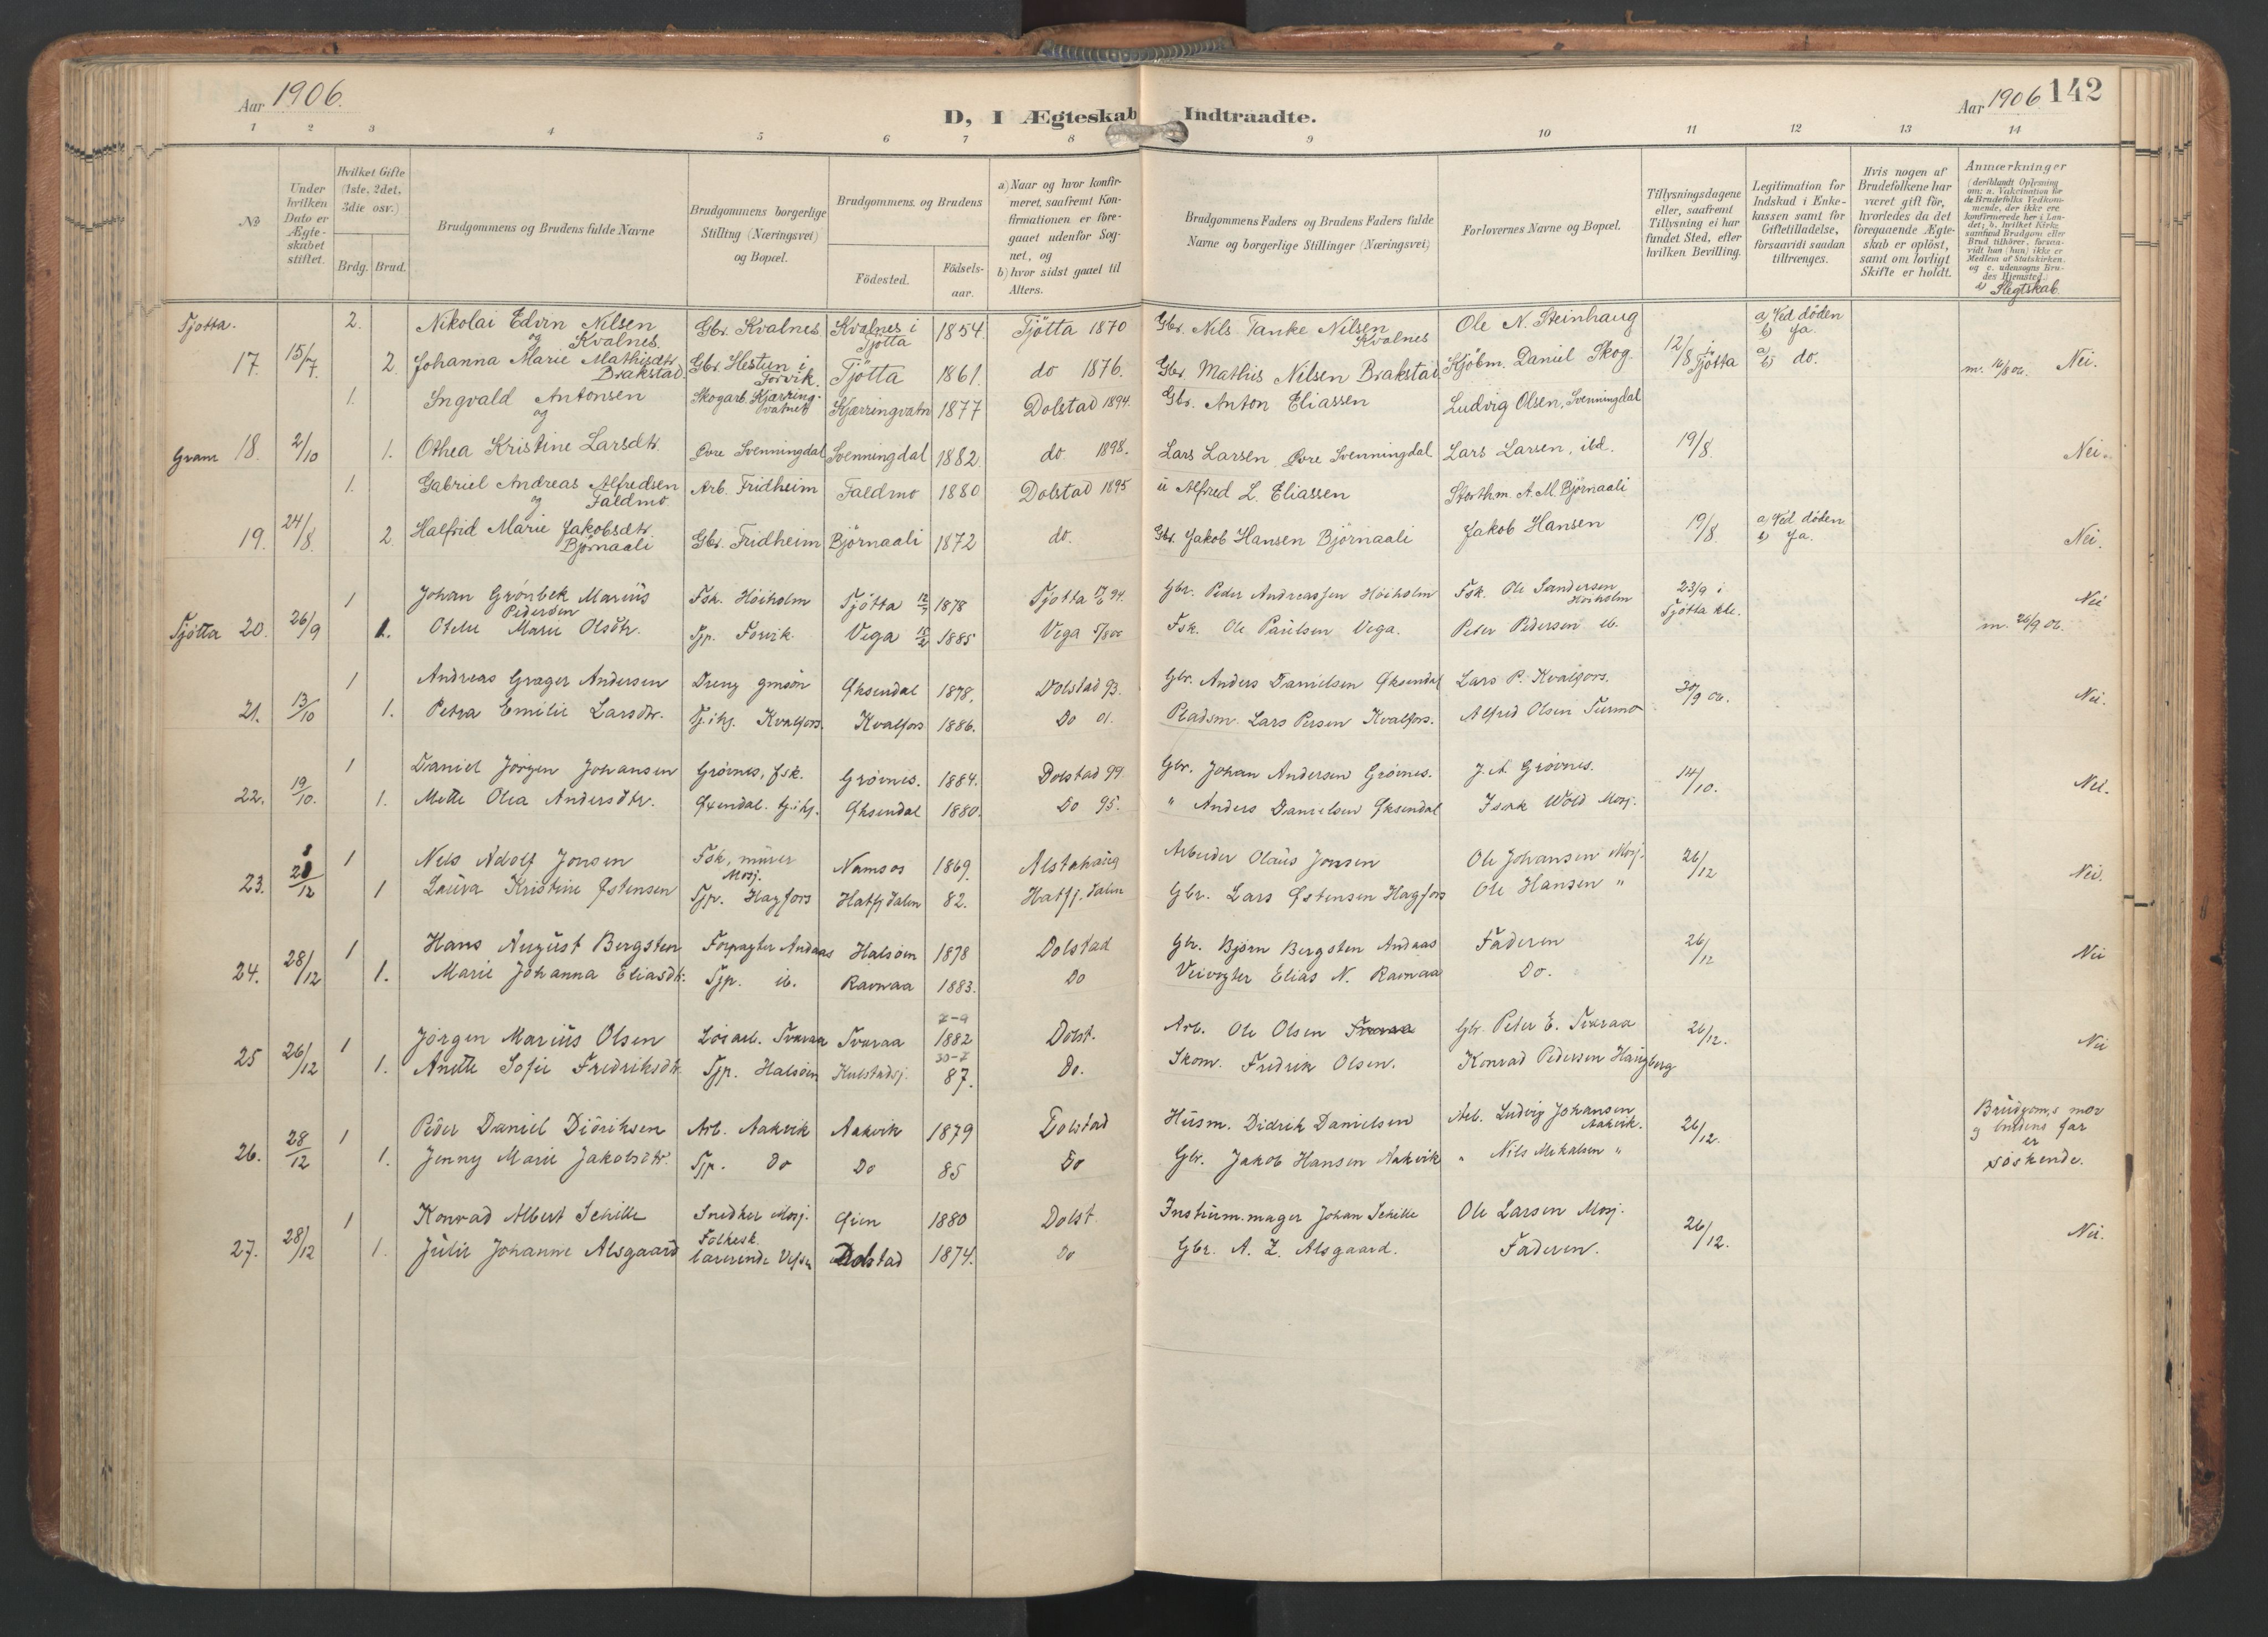 Aar 1906.
D, I Ægteskab Indtraadte.
Aar 1906 142
1 2 3 4 5 6 7 8 9 10 11 12 13 14
No
Under hvilken Dato er Ægteskabet stiftet.
Hvilket Gifte (1ste, 2det, 3die osv.)
Brdg. Brud.
Brudgommens og Brudens fulde Navne
Brudgommens borgerlige Stilling (Næringsvei) og Bopæl.
Brudgommens og Brudens
Födested. Födselsaar.
a) Naar og hvor konfirmeret, saafremt Konfirmationen er foregaaet udenfor Sognet, og
b) hvor sidst gaaet til Alters.
Brudgommens Faders og Brudens Faders fulde Navne og borgerlige Stillinger (Næringsvei)
Forlovernes Navne og Bopæl.
Tillysningsdagene eller, saafremt Tillysning ei har fundet Sted, efter hvilken Bevilling.
Legitimation for Indskud i Enkekassen samt for Giftetilladelse, forsaavidt saadan tiltrænges.
Hvis nogen af Brudefolkene har været gift för, hvorledes da det foregaaende Ægteskab er oplöst, samt om lovligt Skifte er holdt.
Anmærkninger
(deriblandt Oplysning om: a. Vakcination for de Brudefolks Vedkommende, der ikke ere konfirmerede her i Landet; b. hvilket Kirkesamfund Brudgom eller Brud tilhörer, forsaavidt han (hun) ikke er Medlem af Statskirken, og c. udensogns Brudes Hjemsted.
d) Slegtskab.
Tjotta. 2. Nikolai Edvin Nilsen Kvalnes. Gbr. Kvalnes Kvalnes i Tjötta 1854. Tjötta 1870 Gbr. Nils Tanke Nilsen Kvalnes Ole N. Steinhaug a) Ved döden b) Ja.
og
17. 15/7. 2. Johanna Marie Mathisdtr. Brakstad. Gbr. Hestun i Forvik. Tjötta 1861. do 1876. Gbr. Mathis Nilsen Brakstad Kjöbm. Daniel Skog. 12/8 i Tjötta a) b) do. m. 14/8 06. Nei.
1. Ingvald Antonsen Skogarb. Kjærringvatnet Kjærringvatn 1877 Dolstad 1894. Gbr. Anton Eliassen Ludvig Olsen, Svenningdal
og
Gram 18. 2/10 1. Othea Kristine Larsdtr. Övre Svenningdal Svenningdal 1882 do 1898. Lars Larsen Övre Svenningdal Lars Larsen, ibd. 19/8. Nei.
1. Gabriel Andreas Alfredsen Faldmo Arb. Fridheim Faldmo 1880 Dolstad 1895 Alfred L. Eliassen Storthm. A. M. Björnaali
og
19. 24/8. 2. Halfrid Marie Jakobsdtr. Björnaali Gbr. Fridheim Björnaali 1872 do. Gbr. Jakob Hansen Björnaali Jakob Hansen 19/8. a) Ved döden b) Ja. Nei.
1 Johan Grönbek Marius Pedersen Fsk. Höiholm Tjötta 12/9 1878 Tjotta 17/6 94. Gbr. Peder Andreassen Höiholm Fsk. Ole Sandersen Höiholm 23/9 i Tjötta kke. Nei
Tjötta 20. 26/9 1. Oteli Marie Olsdtr. Tjp. Forvik. Vega 10/2 1885 Vega 5/8 00 Fsk. Ole Paulsen Vega. Peter Pedersen ib. m. 26/9 06.
1 Andreas Grager Andersen Dreng Øksendal 1878. Dolstad 93. Gbr. Anders Danielsen Øksendal Lars P. Kvalfors. 30/9 06.
21. 13/10 1. Petra Emilie Larsdtr. Tj. ihj. Kvalfors. Kvalfors 1886. Do 01. Pladsm. Lars Persen Kvalfors. Alfred Olsen Turmo Nei.
1 Daniel Jörgen Johansen Gröines, fsk. Gröines. 1884. Dolstad 99. Gbr. Johan Andersen Gröines. J. A. Gröines. 14/10.
22. 19/10. 1. Mette Olea Andersdtr. Øxendal. tj. ihj. Øksendal 1880. Do 95. " Anders Danielsen Øksendal Isak Wold Mosj. Nei.
1 Nils Adolf Jonsen Fsk, murer Mosj. Namsos 1869. Alstahaug Arbeider Olaus Jonsen Ole Johansen Mosj. 26/12
23. 28/12 1 Laura Kristine Østensen Tjp. Hagfors Hatfjdalen 82. Hatfj.dalen Gbr. Lars Østensen Hagfors Ole Hansen " Nei.
1 Hans August Bergsten Forpagter Andaas Halsöien 1878 Dolstad Gbr. Björn Bergsten Andaas Faderen 26/12 Nei
24. 28/12 1. Marie Johanna Eliasdtr. Tjp. ib. Ravnaa 1883. Do Veivogter Elias N. Ravnaa Do.
1 Jörgen Marius Olsen Lösarb. Tveraa Tveraa 1882 Dolst. Arb. Ole Olsen Tveraa Gbr. Peter E. Tveraa 26/12.
25 26/12 1. Anette Sofie Fredriksdtr. Tjp. Halsöien Kulstadsj. 87. Do. Skom. Fredrik Olsen. Konrad Pedersen Haugberg Nei
1 Peder Daniel Didriksen Arb. Aakvik Aakvik 1879 Dolstad Husm. Didrik Danielsen Arb. Ludvig Johansen Aakvik. 26/12. Brudgom.s mor
26. 28/12 1. Jenny Marie Jakobsdtr. Tjp. Do Do 85 Do Gbr. Jakob Hansen Aakvik " Nils Mikalsen " og brudens far er söskende.
1 Konrad Albert Schille Snedker Mosj. Øien 1880 Dolst. Instrum.mager Johan Schille Ole Larsen Mosj. 26/12. Nei.
27. 28/12 1. Julie Johanne Alsgaard Folkesk. lærerinde Vefsn Dolstad 1874. Do Gbr. A. Z. Alsgaard. Faderen.